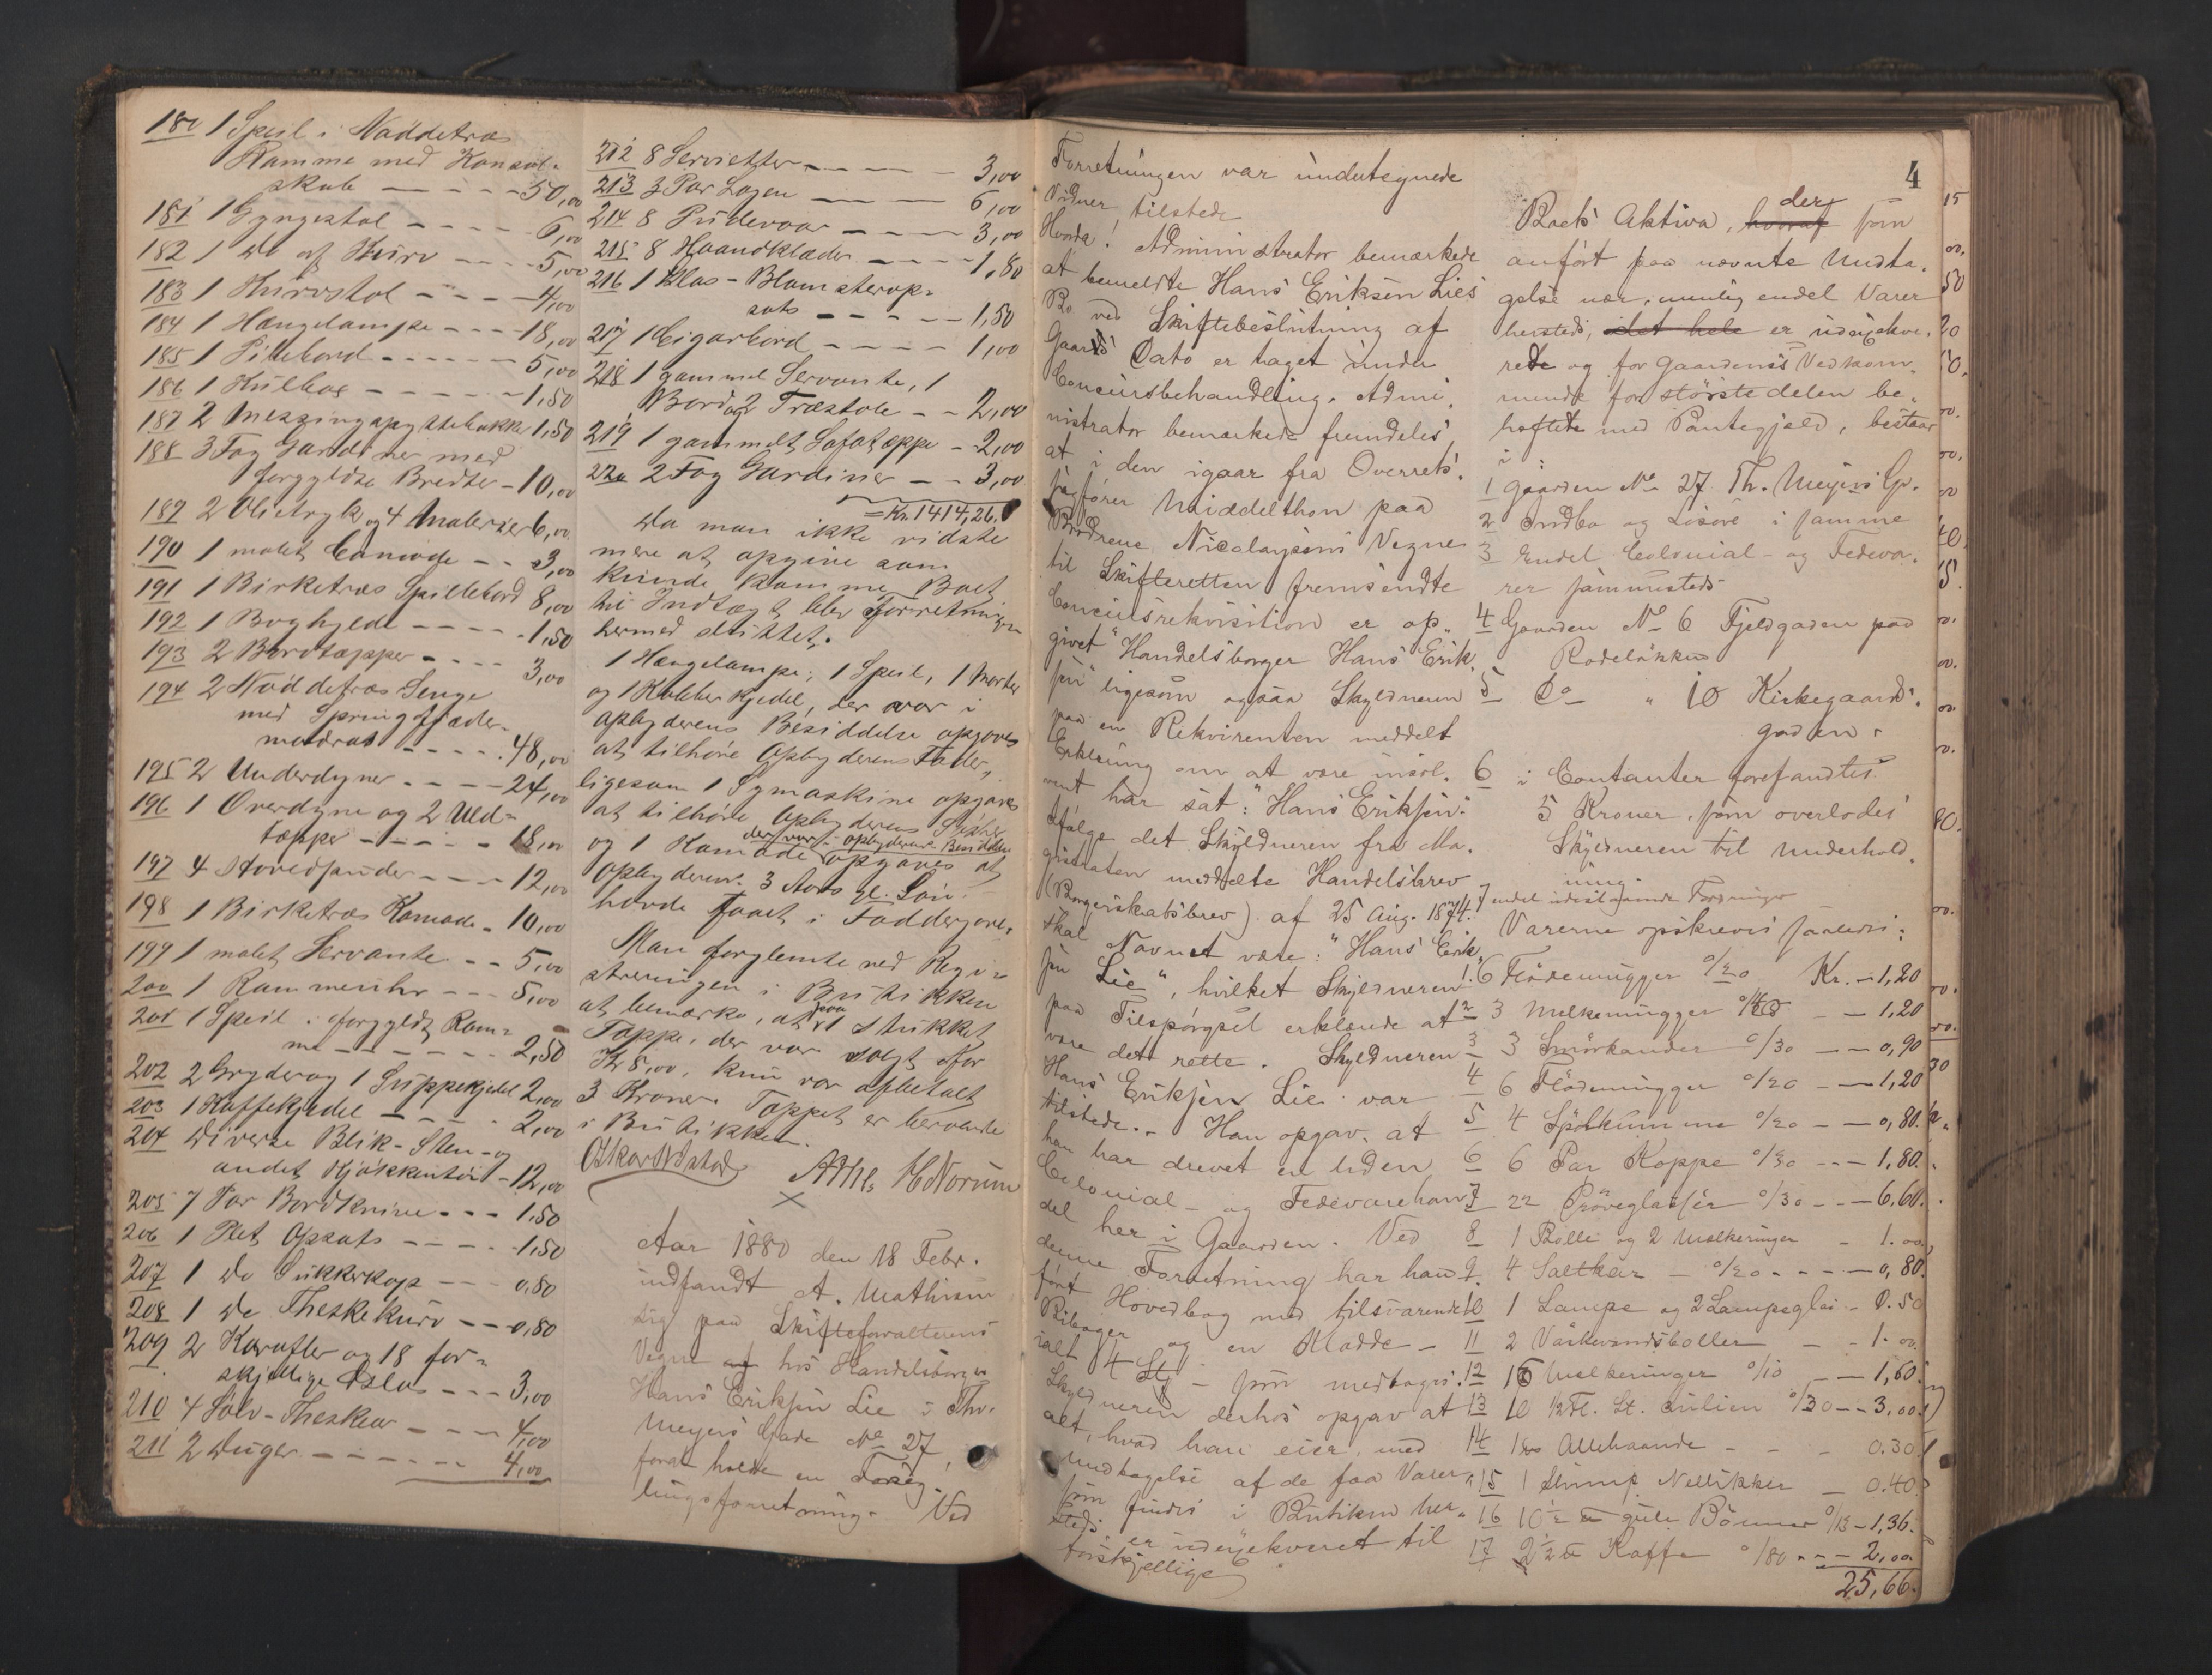 180 1 Speil i Nøddetræs
Ramme med Konsol-
skab - - - - 50,00
181 1 Gyngestol - - - - 6,00
182 1 Do af Kurv - - - 5,00
183 1 Kurvstol - - - - 4,00
184 1 Hængelampe - - - 18,00
185 1 Pillebord - - - - - 5,00
186 1 - - - - - 1,50
187 2 Messingspyttebakke 1,50
188 3 Fag Gardiner med
forgyldte Bredter - 10,00
189 2 Olietryk og 4 Malerier 6,00
190 1 malet Comode - - 3,00
191 1 Birketræs Spillebord 8,00
192 1 Boghylde - - - - 1,50
193 2 Bordtæpper - - - - 3,00
194 2 Nøddetræs Senge
med Springfjæder-
madras - - - - 48,00
195 2 Underdyner - - - - 24,00
196 1 Overdyne og 2 Uld-
tæpper - - - - - 18,00
197 4 Hovedpuder - - - 12,00
198 1 Birketræs Komode - 10,00
199 1 malet Servante - - 5,00
200 1 Rammeuhr - - - 5,00
201 1 Speil i forgyldt Ram-
me - - - - - - 2,50
202 2 Gryder og 1 Suppekjedel 2,00
203 1 Kaffekjedel - - - - 2,00
204 Diverse Blik- Sten- og
andet Kjøkkentøi - 12,00
205 7 Par Bordknive - - - 1,50
206 1 Plet Opsats - - - - 1,50
207 1 Do Sukkerkop - - - 0,80
208 1 Do Theskekurv - - 0,80
209 2 Karafler og 18 for-
skjellige Glas - - - 3,00
210 4 Sølv-Theskeer - - - 4,00
211 2 Duger - - - - - - 4,00
212 8 Servietter - - - - - 3,00
213 3 Par Lagen - - - - 6,00
214 8 Pudevaar - - - - 3,00
215 8 Haandklæder - - - - 1,80
216 1 Glas-Blomsterop-
sats - - - - - 1,50
217 1 Cigarbord - - - - 1,00
218 1 gammel Servante, 1
Bord og 2 Træstole - - 2,00
219 1 gammelt Sofatæppe - 2,00
220 2 Fag Gardiner - - 3,00
= Kr. 1414,26.
Da man ikke vidste
mere at opgive som
kunde komme Boet
til Indtægt, blev Forretningen
hermed sluttet.
1 Hængelampe, 1 Speil, 1 Morter
og 1 Kobberkjedel, der var i
Opbyderens Besiddelse opgaves
at tilhøre Opbyderens Fader,
ligesom 1 Symaskine opgaves
at tilhøre Opbyderens Søster
der var i Opbyderens Besiddelse
og 1 Komode opgaves at
Opbyderens 3 Aars gl. Søn
havde faaet i Faddergave.
Man forglemte ved Regi-
streringen i Butikken
at bemærke, at paa 1 Stukket
Tæppe, der var solgt for
Kr 8,00, kun var afbetalt
3 Kroner. Tæppet er beroende
i Butikken.
Aths. H Norum
Aar 1880 den 18 Febr.
indfandt A. Mathisen
sig paa Skifteforvalterens
Vegne af hos Handelsborger
Hans Eriksen Lie i Thv.
Meyers Gade No 27,
forat holde en Forseg-
lingsforretning. Ved
4
Forretningen var undertegnede
Vidner tilstede
Hvorda! Administrator bemærkede
at bemeldte Hans Eriksen Lies
Bo ved Skiftebeslutning af
Gaars Dato er taget under
Concursbehandling. Admi-
nistrator bemærkede fremdeles,
at i den igaar fra Overrets-
sagfører Middelthon paa
Brødrene Nicolaysens Vegne
til Skifteretten fremsendte
Concursrekvisition er op-
givet "Handelsborger Hans Erik-
sen" ligesom ogsaa Skyldneren
paa en Rekvirenten meddelt
Erklæring om at være insol-
vent har sat: "Hans Eriksen."
Ifølge det Skyldneren fra Ma-
gistraten meddelte Handelsbrev
(Borgerskabsbrev) af 25 Aug. 1874.
skal Navnet være: "Hans Erik-
sen Lie", hvilket Skyldneren
paa Tilspørgsel erklærede at
være det rette. Skyldneren
Hans Eriksen Lie var
tilstede. - Han opgav, at
han har drevet en liden
Colonial- og Fedevarehan-
del her i Gaarden. Ved
denne Forretning har han
ført Hovedbog med tilsvarende
Bibøger og en Kladde -
ialt 4 St - som medtoges.
Skyldneren derhos opgav at
alt, hvad han eier, med
Undtagelse af de faa Varer,
som findes i Butiken her-
steds er udenjekveret til
forskjellige
der
Boets Aktiva, hvoraf som
anført paa nævnte Undta-
gelse nær, nemlig endel Varer
hersteds, det hele er udenjekve-
rede og for Gaardenes Vedkom-
mende for største delen be-
heftede med Pantegjæld, bestaar
i:
1 Gaarden No 27 Th. Meyers G.
2 Indbo og Løsøre i samme
3 Endel Colonial- og Fedeva-
rer sammesteds
4 Gaarden No 6 Fjeldgaden paa
Rodeløkken
5 Do " 10 Kirkegaards-
gaden.
6 i Contanter forefandtes
5 Kroner, som overlodes
Skyldneren til Underhold-
ning.
7 endel udestaaende Fordringer
Varerne opskreves saaledes:
1. 6 Flødemugger o/20 Kr. - 1,20
2 3 Melkemugger o/40 - - 1,20
3 3 Smørkander o/30 - - 0,90
4 6 Flødemugger o/20 - - 1,20
5 4 Spølkumme o/20 - - 0,80.
6 6 Par Koppe o/30 - - - 1,80.
7 22 Prøveglasser o/30 - - - 6,60.
8 1 Bolle og 2 Melkeringer - 1.00
9. 4 Saltkar - o/20 - - - - 0,80.
10 1 Lampe og 2 Lampeglas - 0.50
11 2 Vaskevandsboller - - 1.00
12 16 Melkeringer o/10 - - 1,60.
13 10 1/2 Fl. St. Julien o/30 - - 3,00.
14 Allehaande - - - 0.30
15 1 Nellikker - 0.40.
16 10 1/2 ℔ gule Bønner o/13 - 1,36.
17 2 1/2 ℔ Kaffe o/80 - - - 2,00.
25,66.